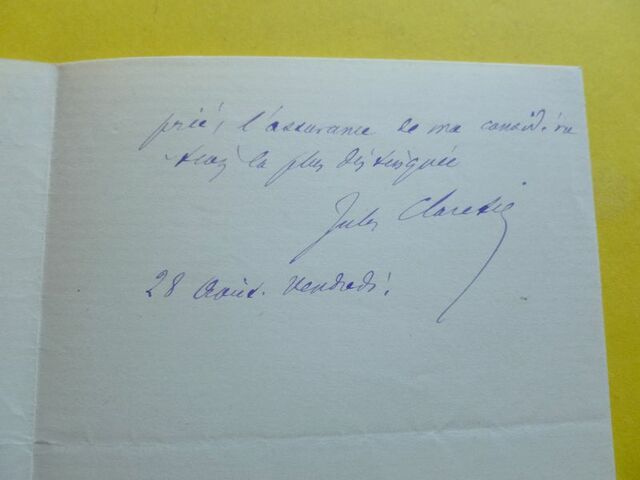 prie, l'assurance de ma considéra
tion la plus distinguée
Jules Claretie
28 Août. Vendredi.